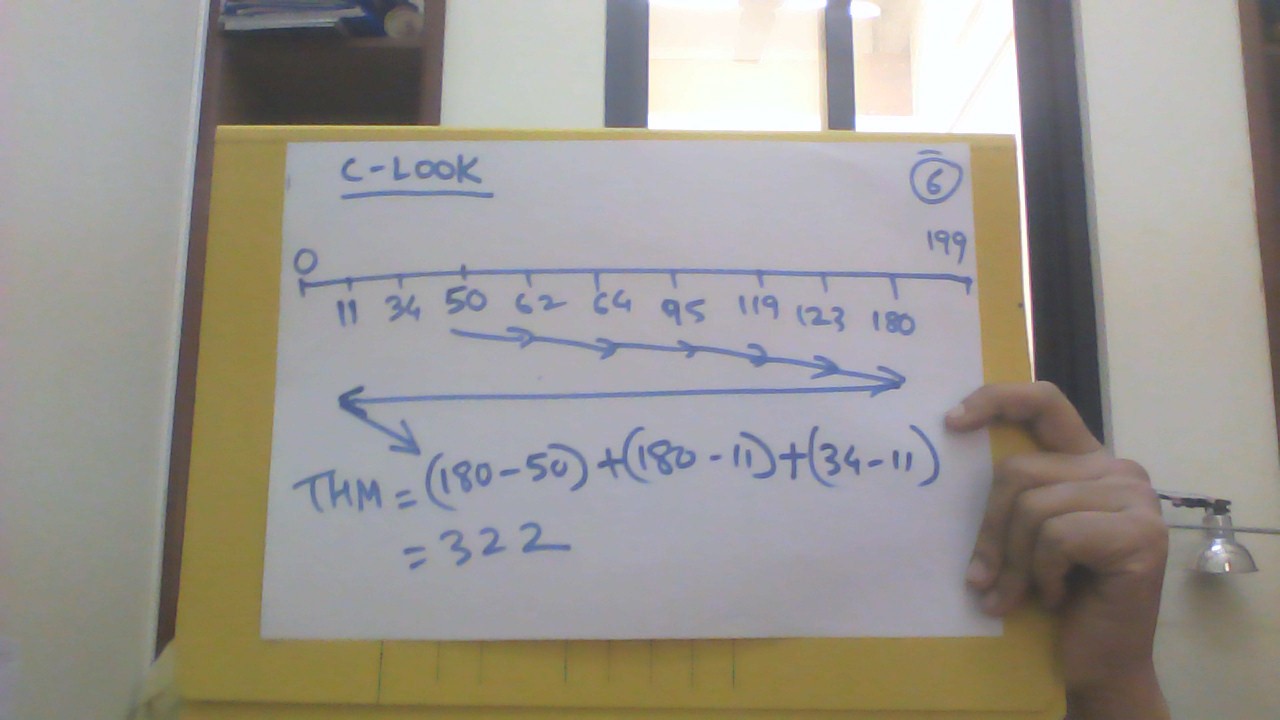 C-LOOK
6
199
0
11 34 50 62 64 95 119 123 180
THM = (180-50)+(180-11)+(34-11)
= 322